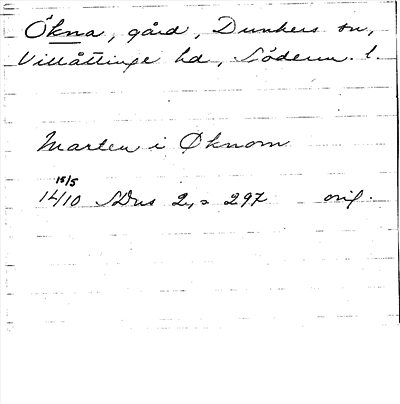 Ökna, gård, Dunkers sn,
Villåttinge hd, Söderm. l.
Marten i Øknom
15/5
1410 SDns 2, s 297 orig.